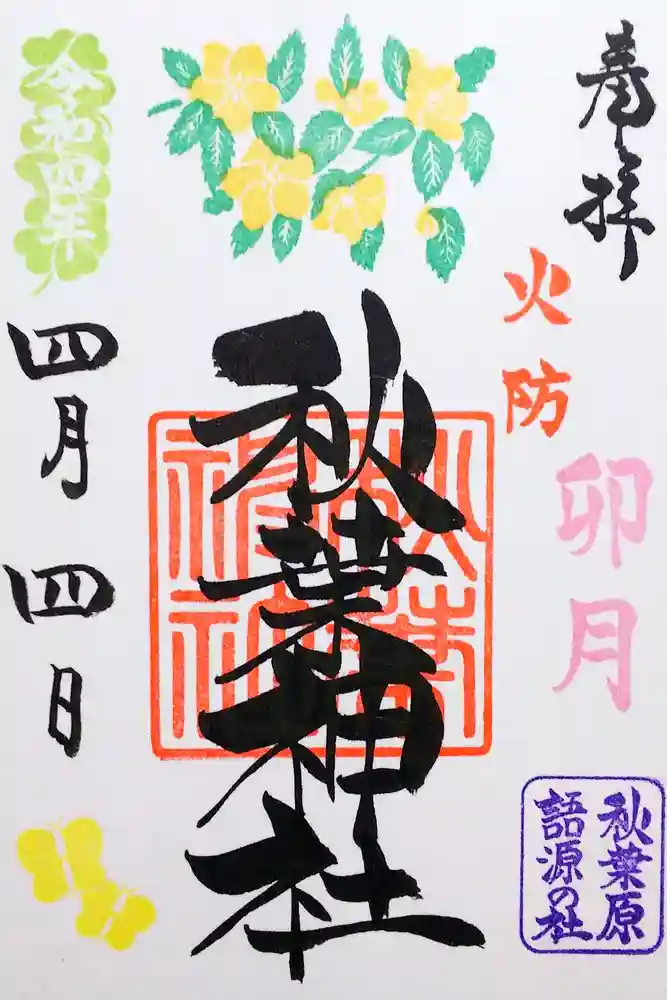 奉拝
火防
卯月
秋葉原
語源の社
秋葉神社
秋葉
神社
令和四年
四月四日